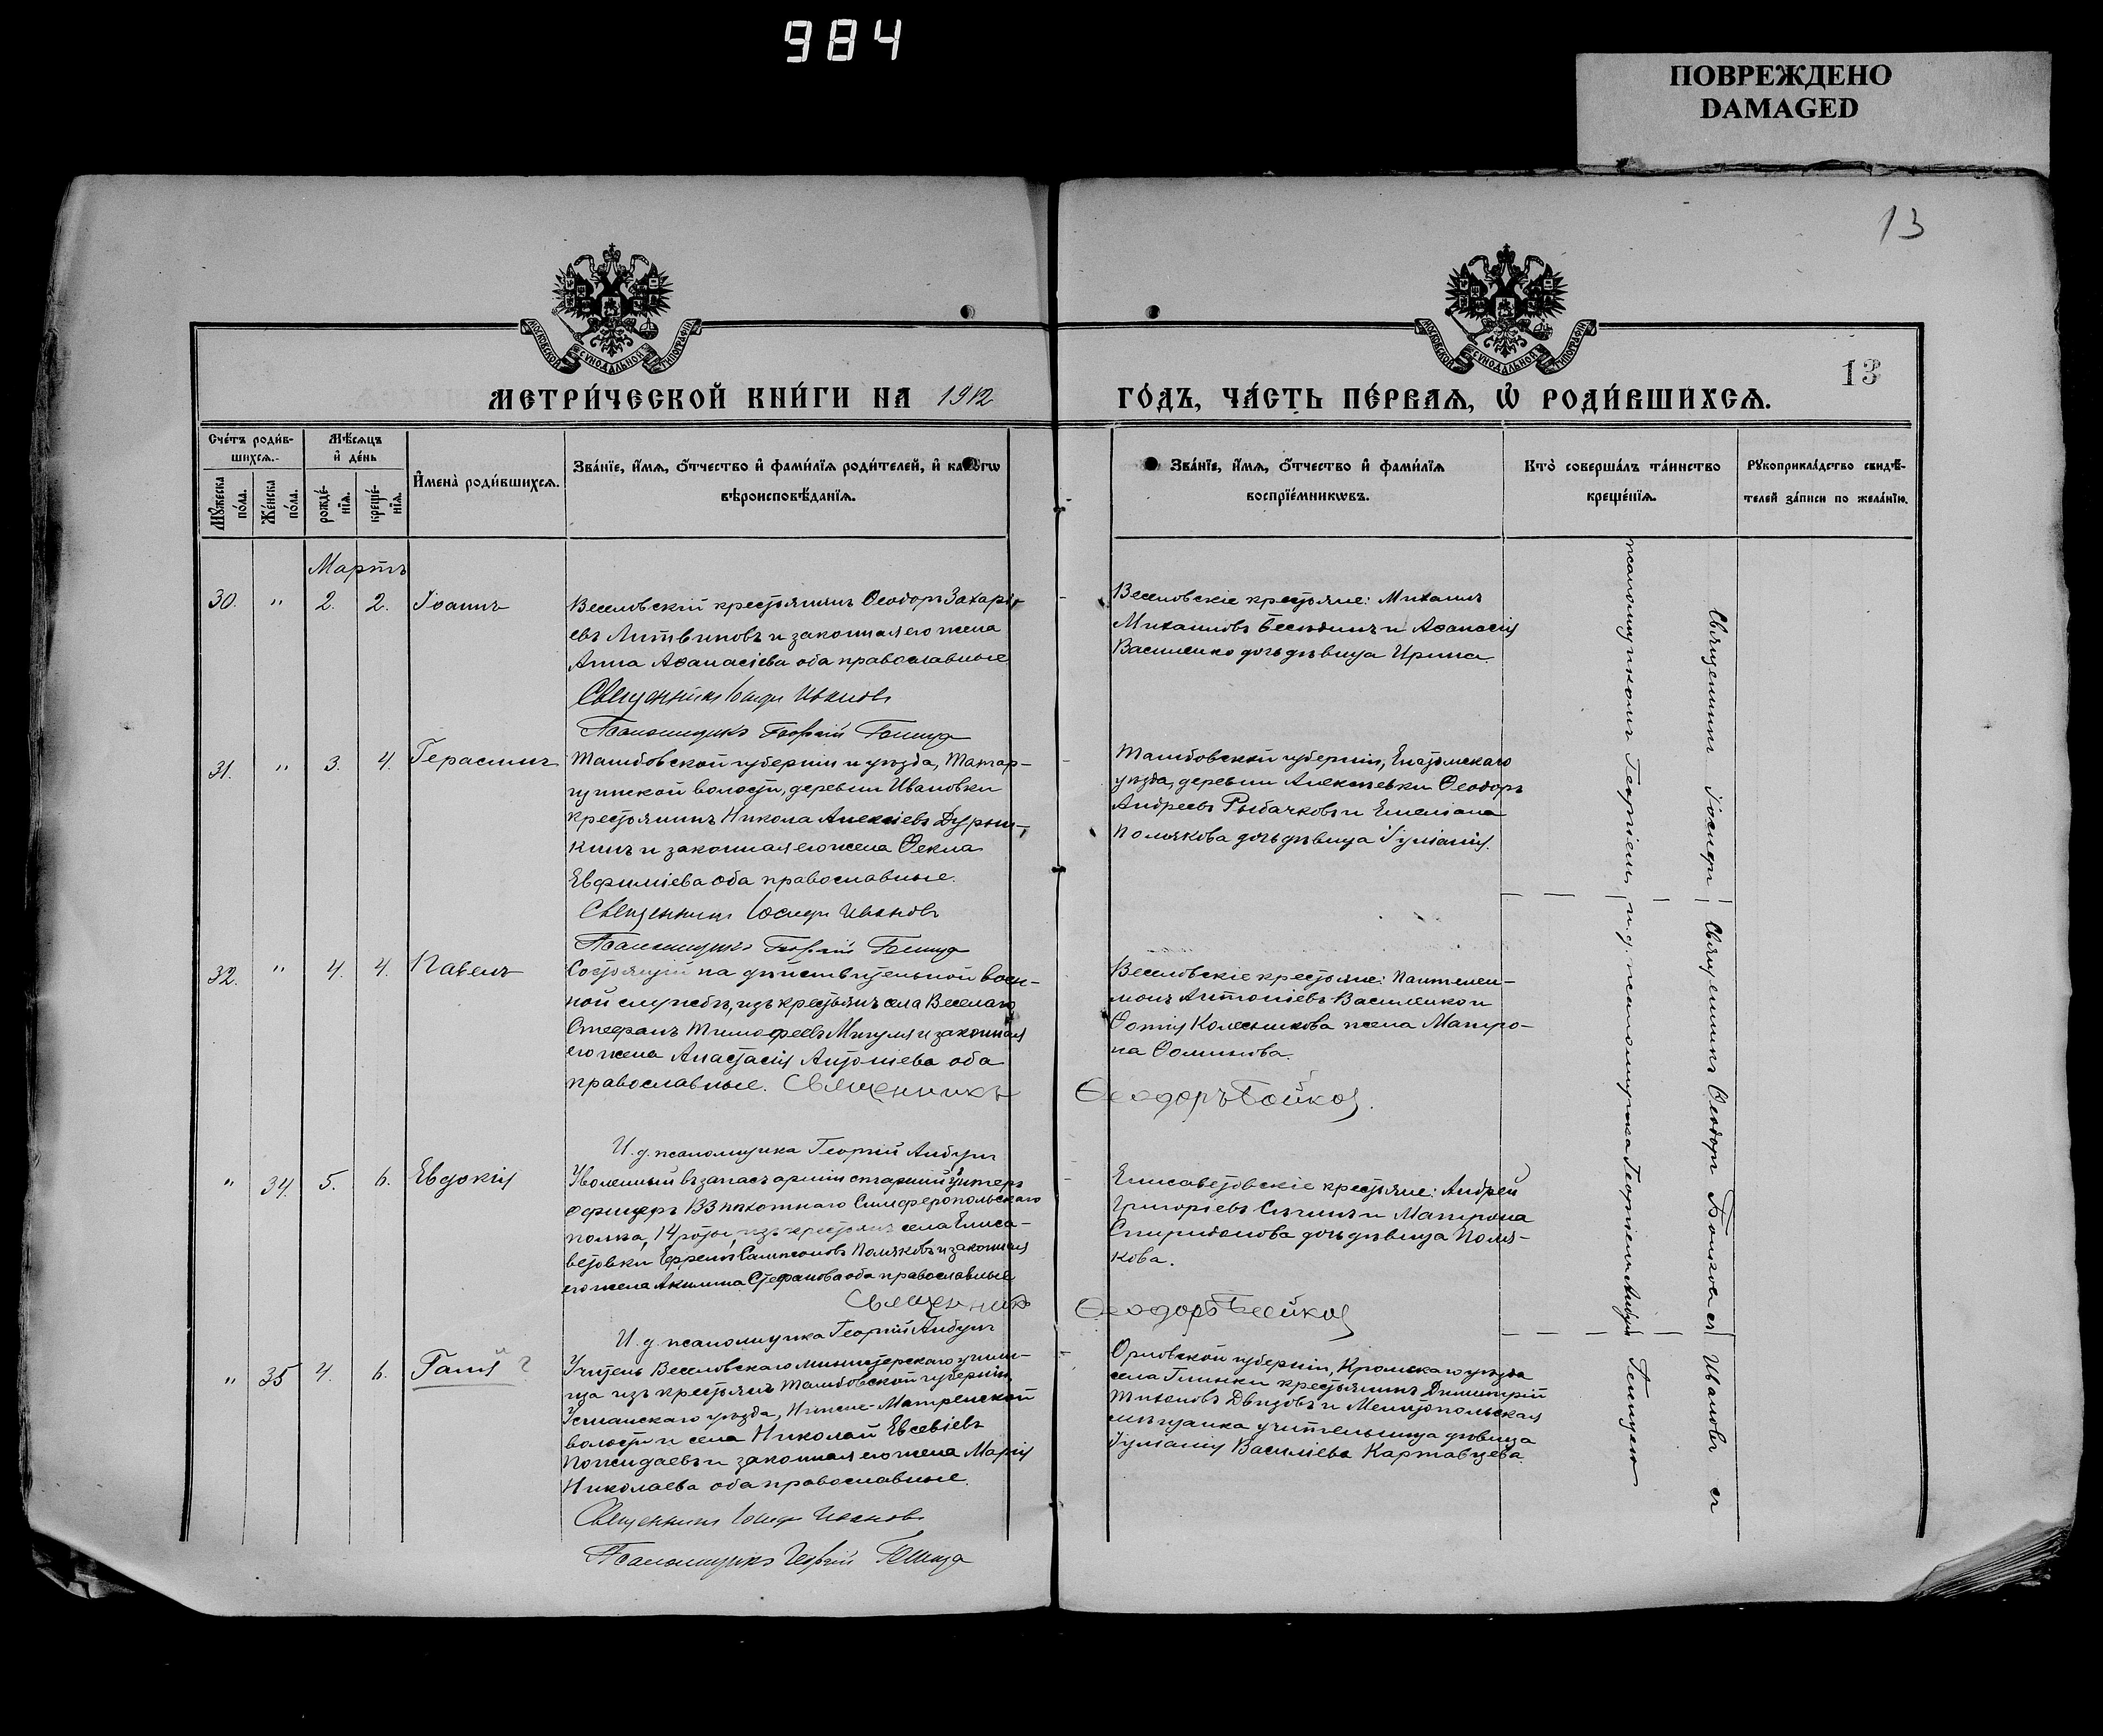 984
ПОВРЕЖДЕНО
DAMAGED
13
МОСКОВСКОЙ СУНОДАЛЬНОЙ ТИПОГРАФІИ
МОСКОВСКОЙ СУНОДАЛЬНОЙ ТИПОГРАФІИ
13
МЕТРИ́ЧЕСКОЙ КНИ́ГИ НА 1912 ГО́ДЪ, ЧА́СТЬ ПЕ́РВАѦ, Ѡ҆ РОДИ́ВШИХСѦ.
Сче́тъ роди́в-
шихсѧ.
Мѣ́сѧцъ
и҆ де́нь
Мꙋ́жеска по́ла.
Же́нска по́ла.
рожде́-
нїѧ.
креще́-
нїѧ.
И҆мена̀ роди́вшихсѧ.
Зва́нїе, и҆́мѧ, ѻ҆́тчество и҆ фами́лїѧ роди́телей, и҆ како́гѡ
вѣроисповѣ́данїѧ.
Зва́нїе, и҆́мѧ, ѻ҆́тчество и҆ фами́лїѧ
воспрїе́мникѡвъ.
Кто̀ соверша́лъ та́инство
креще́нїѧ.
Рꙋкоприкла́дство свидѣ́-
телей за́писи по жела́нїю.
Мартъ
30. " 2. 2. Іоаннъ
Веселовскій крестьянинъ Ѳеодоръ Захарі-
евъ Литвиновъ и законная его жена
Анна Аѳанасіева оба православные
Священникъ Іосифъ Ивановъ
Псаломщикъ Георгій
Веселовскіе крестьяне: Михаилъ
Михаиловъ Бесѣдинъ и Аѳанасія
Василенко дочь дѣвица Ирина.
31. " 3. 4. Герасимъ
Тамбовской губерніи и уѣзда, Татар-
щинской волости, деревни Ивановки
крестьянинъ Никола Алексіевъ Дурни-
кинъ и законная его жена Ѳекла
Евфиміева оба православные.
Священникъ Іосифъ Ивановъ
Псаломщикъ Георгій
Тамбовской губерніи, Елатомскаго
уѣзда, деревни Алексѣевки Ѳеодоръ
Андреевъ Рыбачковъ и Емеліана
Полякова дочь дѣвица Іуліанія.
32. " 4. 4. Павелъ
Состоящій на дѣйствительной воен-
ной службѣ, изъ крестьянъ села Веселаго
Стефанъ Тимофеевъ Мигуля и законная
его жена Анастасія Антоніева оба
православные. Священникъ Ѳеодоръ Бойко.
И. д. псаломщика Георгій
Веселовскіе крестьяне: Пантелеи-
монъ Антоніевъ Василенко и
Ѳотія Колесникова жена Матро-
на Ѳоминова.
" 34. 5. 6. Евдокія
Уволенный въ запасъ арміи старшій унтеръ
офицеръ 133 пѣхотнаго Симферопольскаго
полка, 14 роты, изъ крестьянъ села Елиса-
ветовки Ефремъ Сампсоновъ Поляковъ и законная
его жена Акилина Стефанова оба православные
Священникъ Ѳеодоръ Бойко
И. д. псаломщика Георгій
Елисаветовскіе крестьяне: Андрей
Григоріевъ и Матрона
Спиридонова дочь дѣвица Поля-
кова.
" 35 4. 6. Галія ?
Учитель Веселовскаго министерскаго учили-
ща изъ крестьянъ Тамбовской губерніи
Усманскаго уѣзда, Нижне-Матренской
волости и села Николай Евсевіевъ
Пожидаевъ и законная его жена Марія
Николаева оба православные.
Священникъ Іосифъ Ивановъ
Псаломщикъ Георгій
Орловской губерніи, Кромскаго уѣзда
села Глинки крестьянинъ Димитрій
Тихоновъ Двизовъ и Мелитопольская
мѣщанка учительница дѣвица
Іуліанія Василіева Картавцева
Священникъ Іосифъ
псаломщикомъ Георгіемъ
Священникъ Ѳеодоръ Бойко съ
и. д. псаломщика Георгіемъ
Ивановъ съ